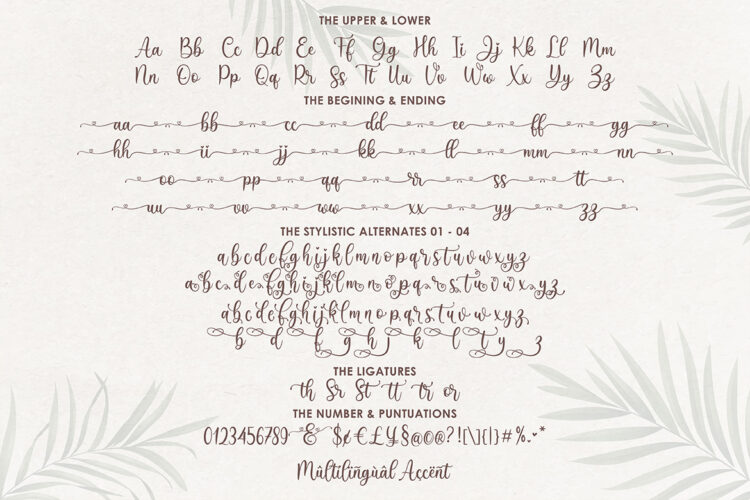 THE UPPER & LOWER
Aa Bb Cc Dd Ee Ff Gg Hh Ii Jj Kk Ll Mm
Nn Oo Pp Qq Rr Ss Tt Uu Vv Ww Xx Yy Zz
THE BEGINING & ENDING
aa bb cc dd ee ff gg
hh ii jj kk ll mm nn
oo pp qq rr ss tt
uu vv ww xx yy zz
THE STYLISTIC ALTERNATES 01 - 04
abcdefghijklmnopqrstuvwxyz
abcdefghijklmnopqrstuvwxyz
abcdefghijklmnopqrstuvwxyz
b d f g h j k l t y z
THE LIGATURES
th Sr St tt tr or
THE NUMBER & PUNTUATIONS
0123456789 & $¢€£¥§@©®?![\]{|}#%.-*
Múltílíngùàl Aççënt